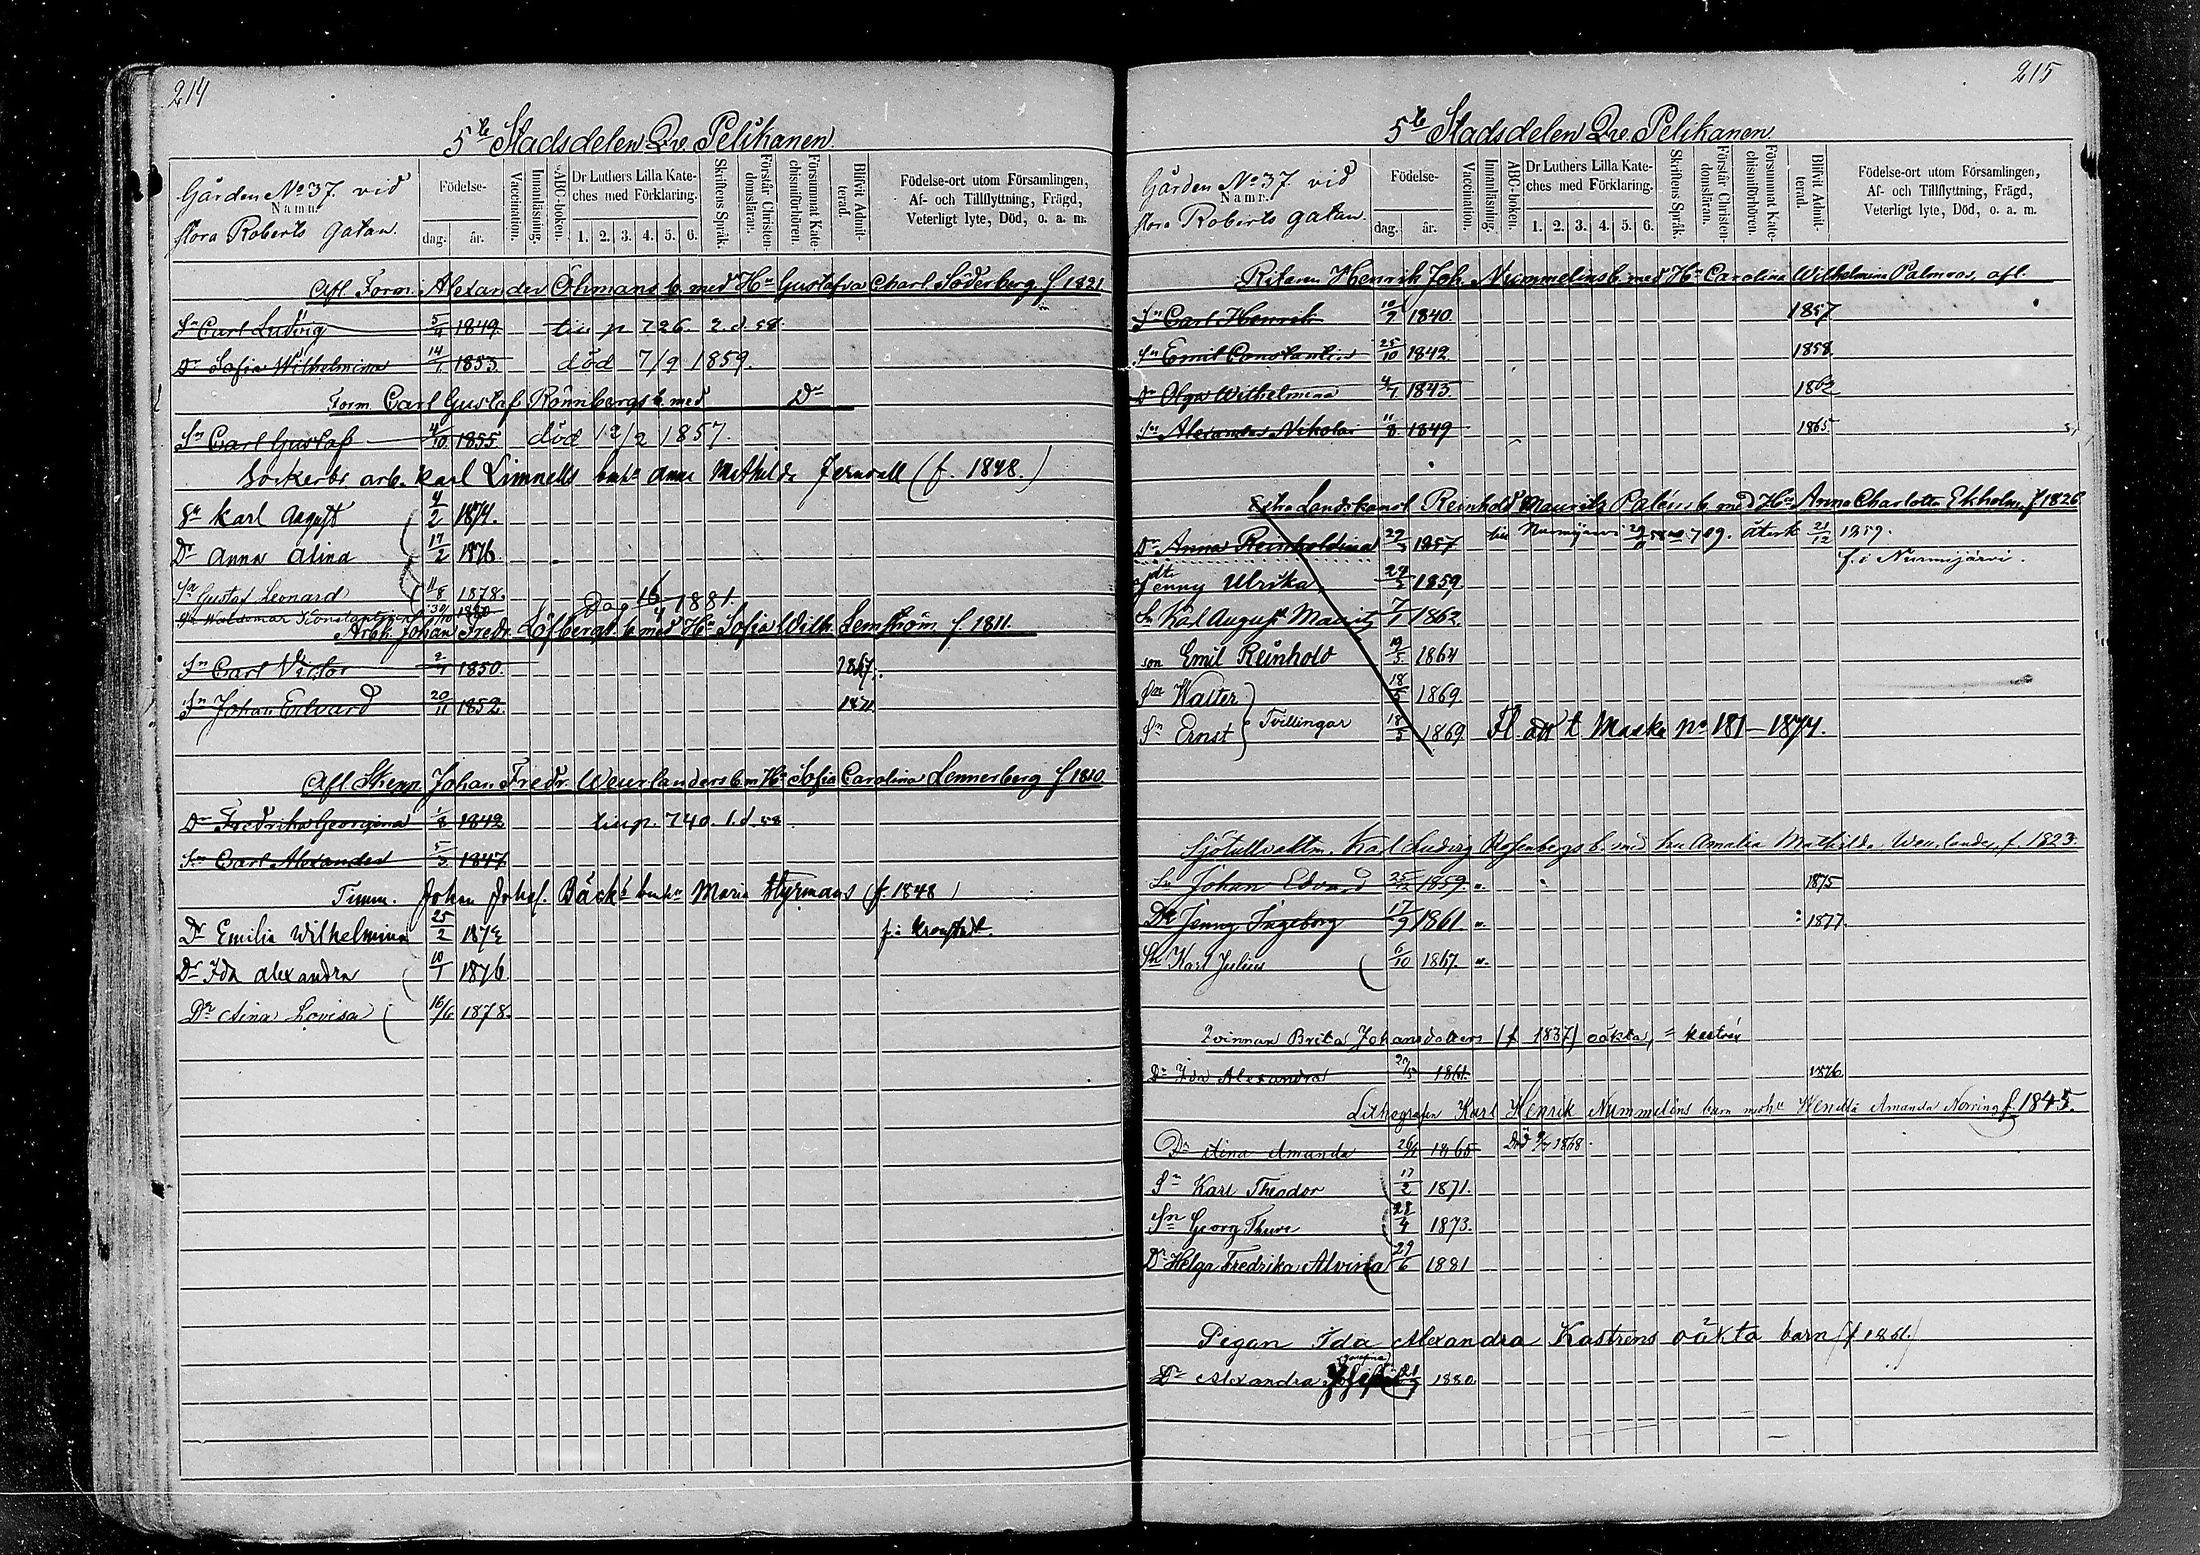 214
5te Stadsdelen Qv. Pelikanen
Gården No 37. vid
Namn.
stora Roberts gatan.
Födelse-
dag. år.
Vaccination.
Innanläsning.
ABC-boken.
Dr Luthers Lilla Kate-
ches med Förklaring.
1. 2. 3. 4. 5. 6.
Skriftens Språk.
Förstår Christen-
domsläran.
Försummat Kate-
chismiförhören.
Blifvit Admit-
terad.
Födelse-ort utom Församlingen,
Af- och Tillflyttning, Frägd,
Veterligt lyte, Död, o. a. m.
Afl. Form. Alexander Öhmans b. med Hu Gustafva Charl. Söderberg f 1821
Sn Carl Ludvig 5/4 1849. p 726. 2. d. 58.
Dr Sofia Wilhelmina 14/1 1853 död 7/9 1859.
Form. Carl Gustaf Rönnbergs b. med Dn
Sn Carl Gustaf 4/10 1855 död 12/2 1857.
Sockerbr. arb. Karl Limnells Anna Mathilda Jernvall (f. 1848.)
Sn Karl August 4/2 1874.
Dr Anna Alina 17/2 1876
Sn Gustaf Leonard 11/8 1878.
Sn Waldemar Konstantin 30/10 1880 Dog 16/4 1881.
Arb. Johan Fredr. Löfbergs b. med Hu Sofia Wilh. Lemström f 1811.
Sn Carl Victor 2/7 1850. 1867.
Sn Johan Edvard 20/11 1852. 1871
Afl. Skepp. Johan Fredr. Weurlanders b. m Hu Sofia Carolina Lennerberg f 1810
Dr Fredrika Georgina 1/8 1842 p. 740. 1. d. 58
Sn Carl Alexander 5/3 1847
Timm. Johan Johas. Bäcks Maria Styrmans (f. 1848)
Dr Emilia Wilhelmina 25/2 1873 f. i Kronstadt.
Dr Ida Alexandra 10/1 1876.
Dr Aina Lovisa 16/6 1878.
215
5te Stadsdelen Qv. Pelikanen
Gården No 37. vid
Namn.
stora Roberts gatan.
Födelse-
dag. år.
Vaccination.
Innanläsning.
ABC-boken.
Dr Luthers Lilla Kate-
ches med Förklaring.
1. 2. 3. 4. 5. 6.
Skriftens Språk.
Förstår Christen-
domsläran.
Försummat Kate-
chismiförhören.
Blifvit Admit-
terad.
Födelse-ort utom Församlingen,
Af- och Tillflyttning, Frägd,
Veterligt lyte, Död, o. a. m.
Ritaren Henrik Joh. Nummelins b. med Hu Carolina Wilhelmina Palmroos, afl.
Sn Carl Henrik 10/9 1840 1857
Sn Emil Constantin 25/10 1842 1858
Dr Olga Wilhelmina 4/7 1843 1862
Sn Alexander Nikolai 11/8 1849 1865
Extra Landskanсl Reinhold Mauritz Paléns b. med Hu Anna Charlotta Ekholm, f 1826
Dr Anna Reinholdina 29/3 1857 till Nurmijärvi 58 709. återk 21/12 1859.
f. i Nurmijärvi.
dtr Jenny Ulrika 29/3 1859
Sn Karl August Mauritz 7/1 1862.
son Emil Reinhold 19/3 1864
Sn Walter 18/5 1869
Sn Ernst } Tvillingar 18/5 1869 Fl att t Maska No 181-1874.
Sjötullvaktm. Karl Ludvig Rosenbergs b. med Hu Amalia Mathilda Weurlander, f. 1823.
Sn Johan Edvard 25/12 1859. 1875
Dr Jenny Ingeborg 17/9 1861 1877.
Sn Karl Julius 6/10 1867.
Qvinnan Brita Johansdotters (f 1837) oäkta, = Kastrén
Dr Ida Alexandra 1861. 1876
Lithografen Karl Henrik Nummelins barn m Hu Wendla Amanda Norring f. 1845.
Dr Aina Amanda 26/4 1865 Död 1868.
Sn Karl Theodor 17/2 1871.
Sn Georg Thure 28/4 1873.
Dr Helga Fredrika Alvina 29/6 1881
Pigan Ida Alexandra Kastrens oäkta barn (f 1861.)
Dr Alexandra Josefina 1880